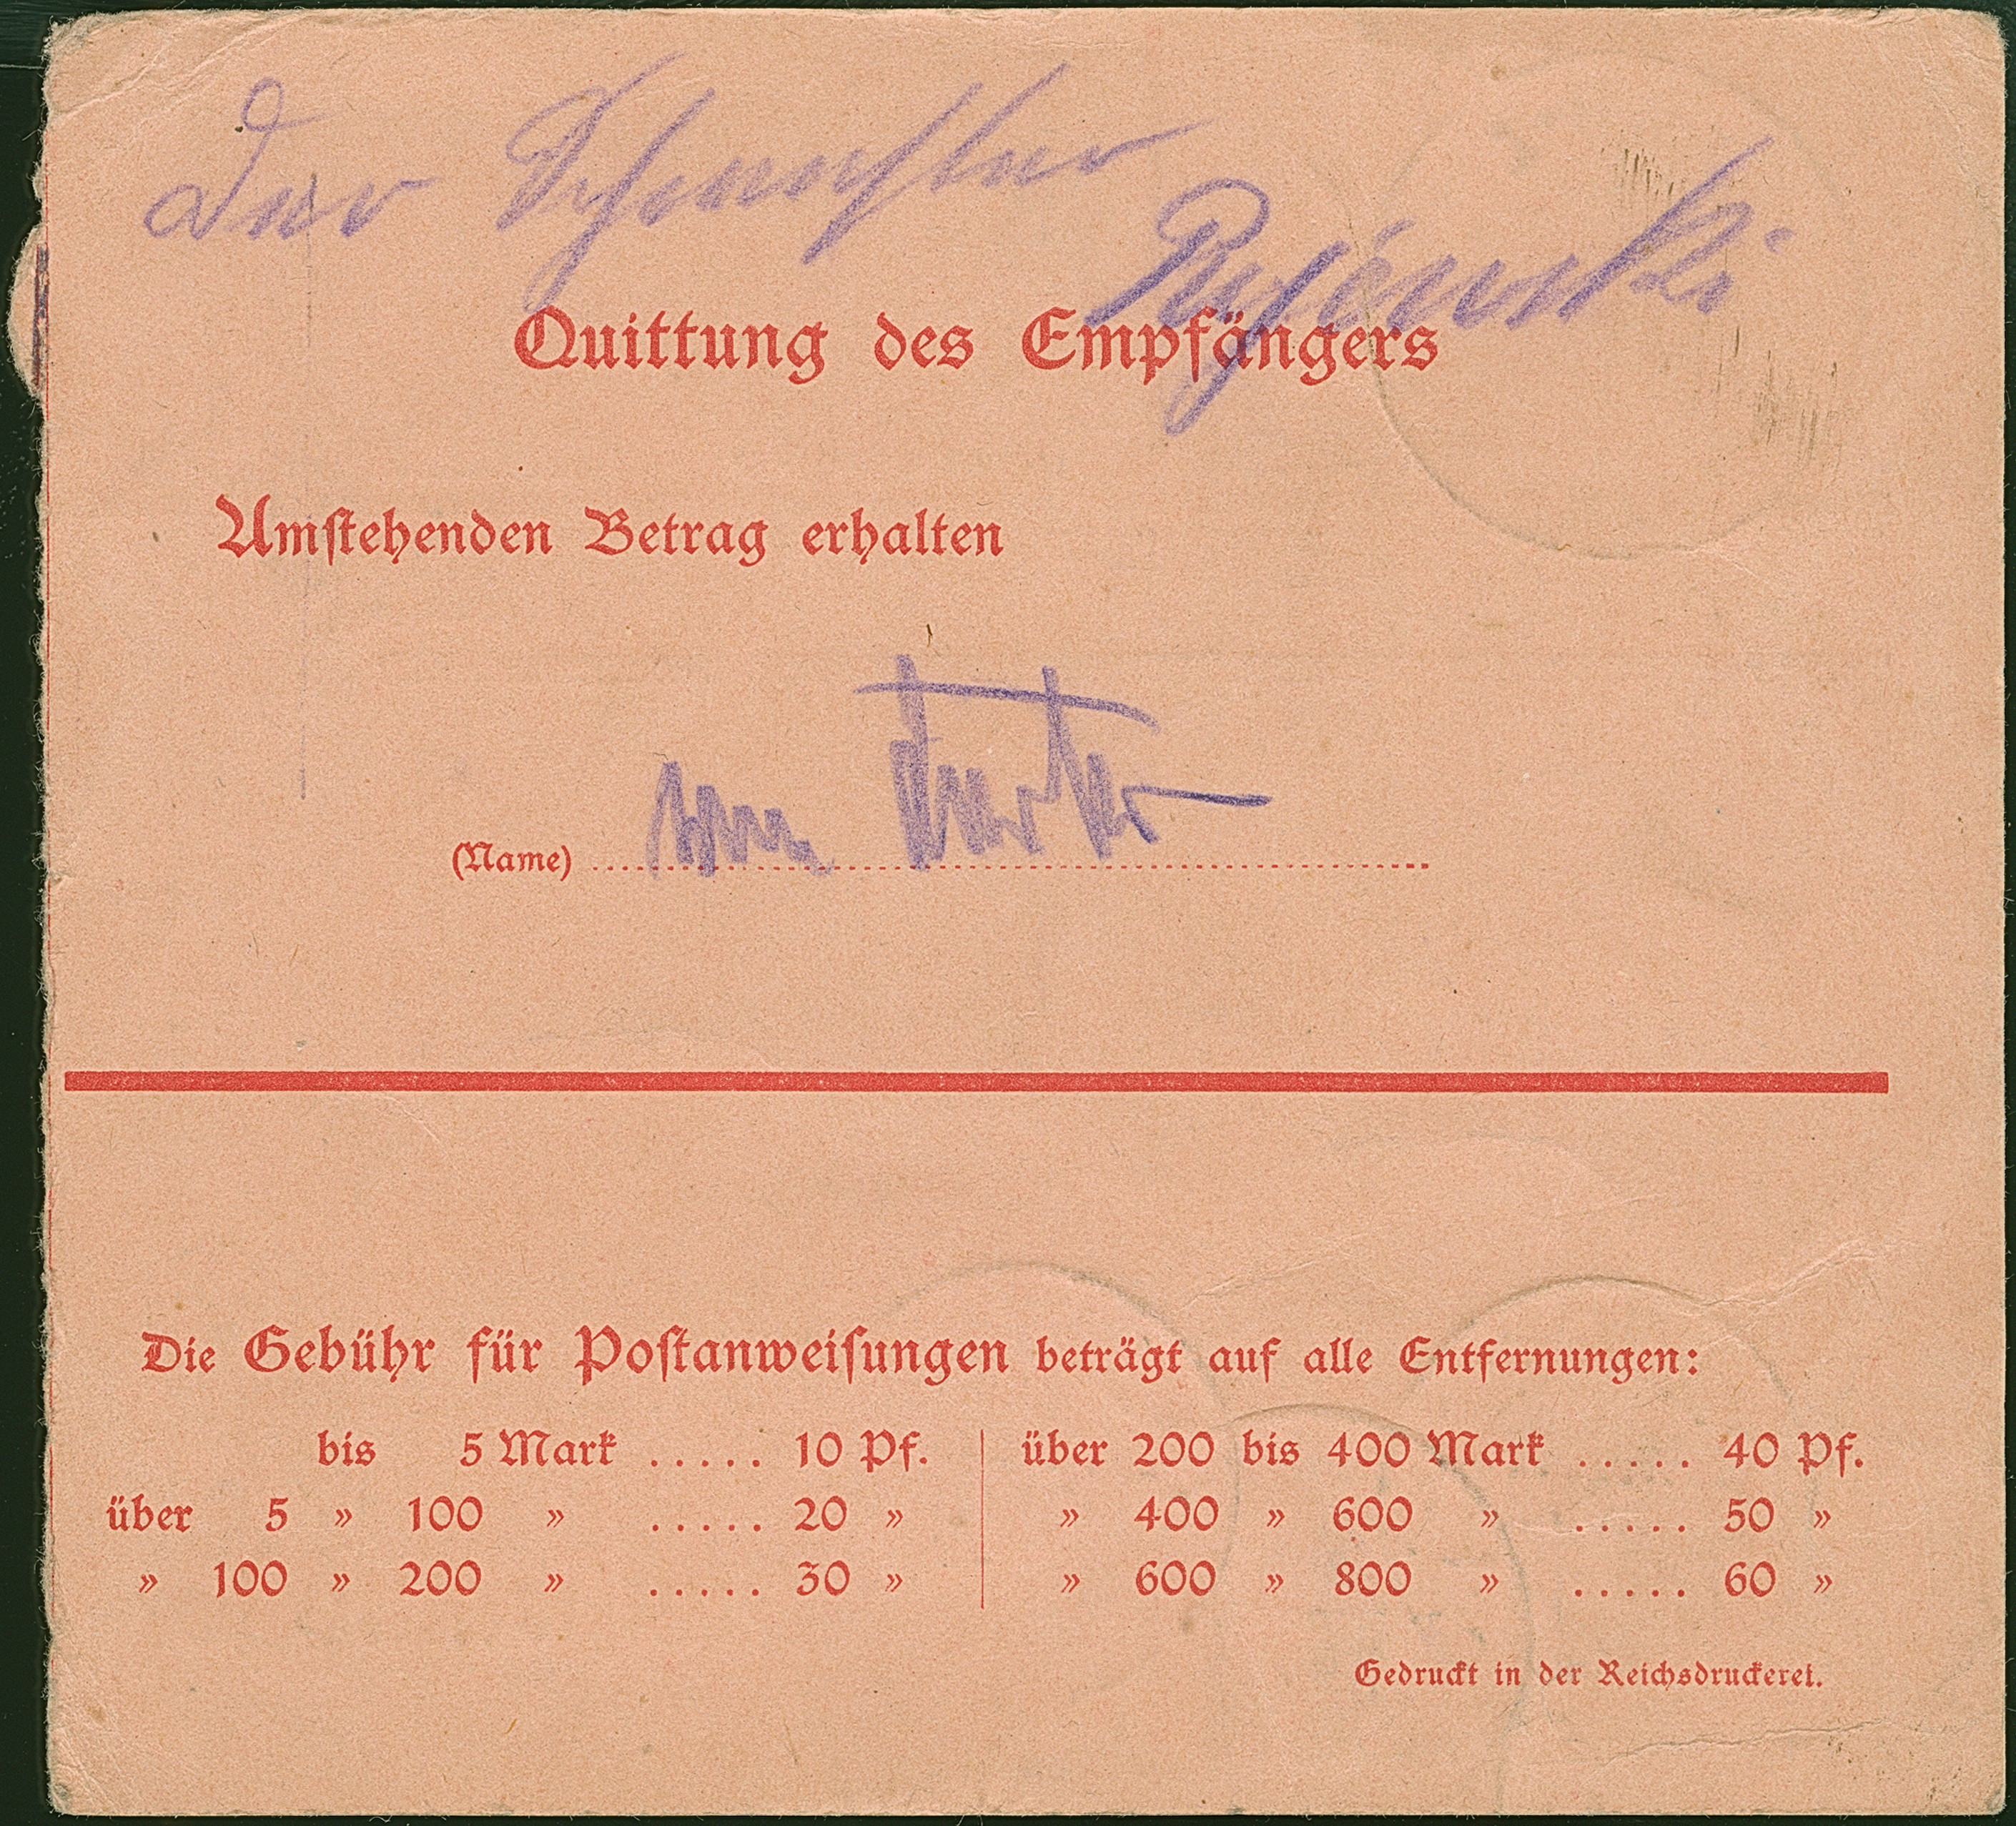 Der Schwester
Quittung des Empfängers
Umstehenden Betrag erhalten
(Name)
Die Gebühr für Postanweisungen beträgt auf alle Entfernungen:
bis 5 Mark ..... 10 Pf. über 200 bis 400 Mark ..... 40 Pf.
über 5 » 100 » ..... 20 » » 400 » 600 » ..... 50 »
» 100 » 200 » ..... 30 » » 600 » 800 » ..... 60 »
Gedruckt in der Reichsdruckerei.